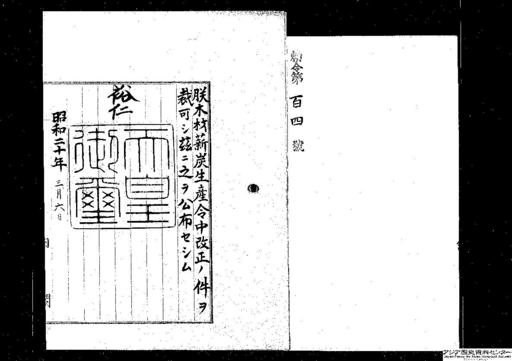 勅令第百四號
朕木材薪炭生産令中改正ノ件ヲ
裁可シ茲ニ之ヲ公布セシム
裕仁
天皇御璽
昭和二十年三月六日
内閣
アジア歴史資料センター